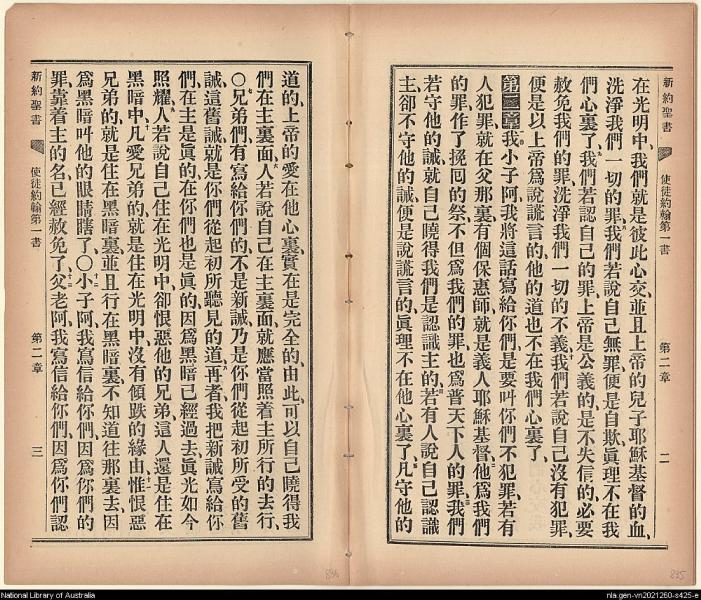 新約聖書　使徒約翰第一書　第二章　二
在光明中、我們就是彼此心交、並且上帝的兒子耶穌基督的血、
洗淨我們一切的罪、我們若說自己無罪、便是自欺、眞理不在我
們心裏了、我們若認自己的罪、上帝是公義的、是不失信的、必要
赦免我們的罪、洗淨我們一切的不義、我們若說自己沒有犯罪、
便是以上帝爲說謊言的、他的道也不在我們心裏了、
第二章 我小子阿、我將這話寫給你們、是要叫你們不犯罪、若有
人犯罪、就在父那裏有個保惠師、就是義人耶穌基督、他爲我們
的罪作了挽囘的祭、不但爲我們的罪、也爲普天下人的罪、我們
若守他的誡、就自己曉得我們是認識主的、若有人說自己認識
主、卻不守他的誡、便是說謊言的、眞理不在他心裏了、凡守他的
道的、上帝的愛在他心裏、實在是完全的、由此可以自己曉得我
們在主裏面、人若說自己在主裏面、就應當照着主所行的去行、
〇兄弟們、有寫給你們的、不是新誡、乃是你們從起初所受的舊
誡、這舊誡就是你們從起初所聽見的道、再者我把新誡寫給你
們、在主是眞的、在你們也是眞的、因爲黑暗已經過去、眞光如今
照耀、人若說自己住在光明中、卻恨惡他的兄弟、這人還是住在
黑暗中、凡愛兄弟的、就是住在光明中、沒有傾跌的緣由、惟恨惡
兄弟的、就是住在黑暗裏、並且行在黑暗裏、不知道往那裏去、因
爲黑暗叫他的眼睛瞎了、〇小子阿、我寫信給你們、因爲你們的
罪靠着主的名已經赦免了、父老阿、我寫信給你們、因爲你們認
新約聖書　使徒約翰第一書　第二章　三
834
835
National Library of Australia
nla.gen-vn2021260-s425-e